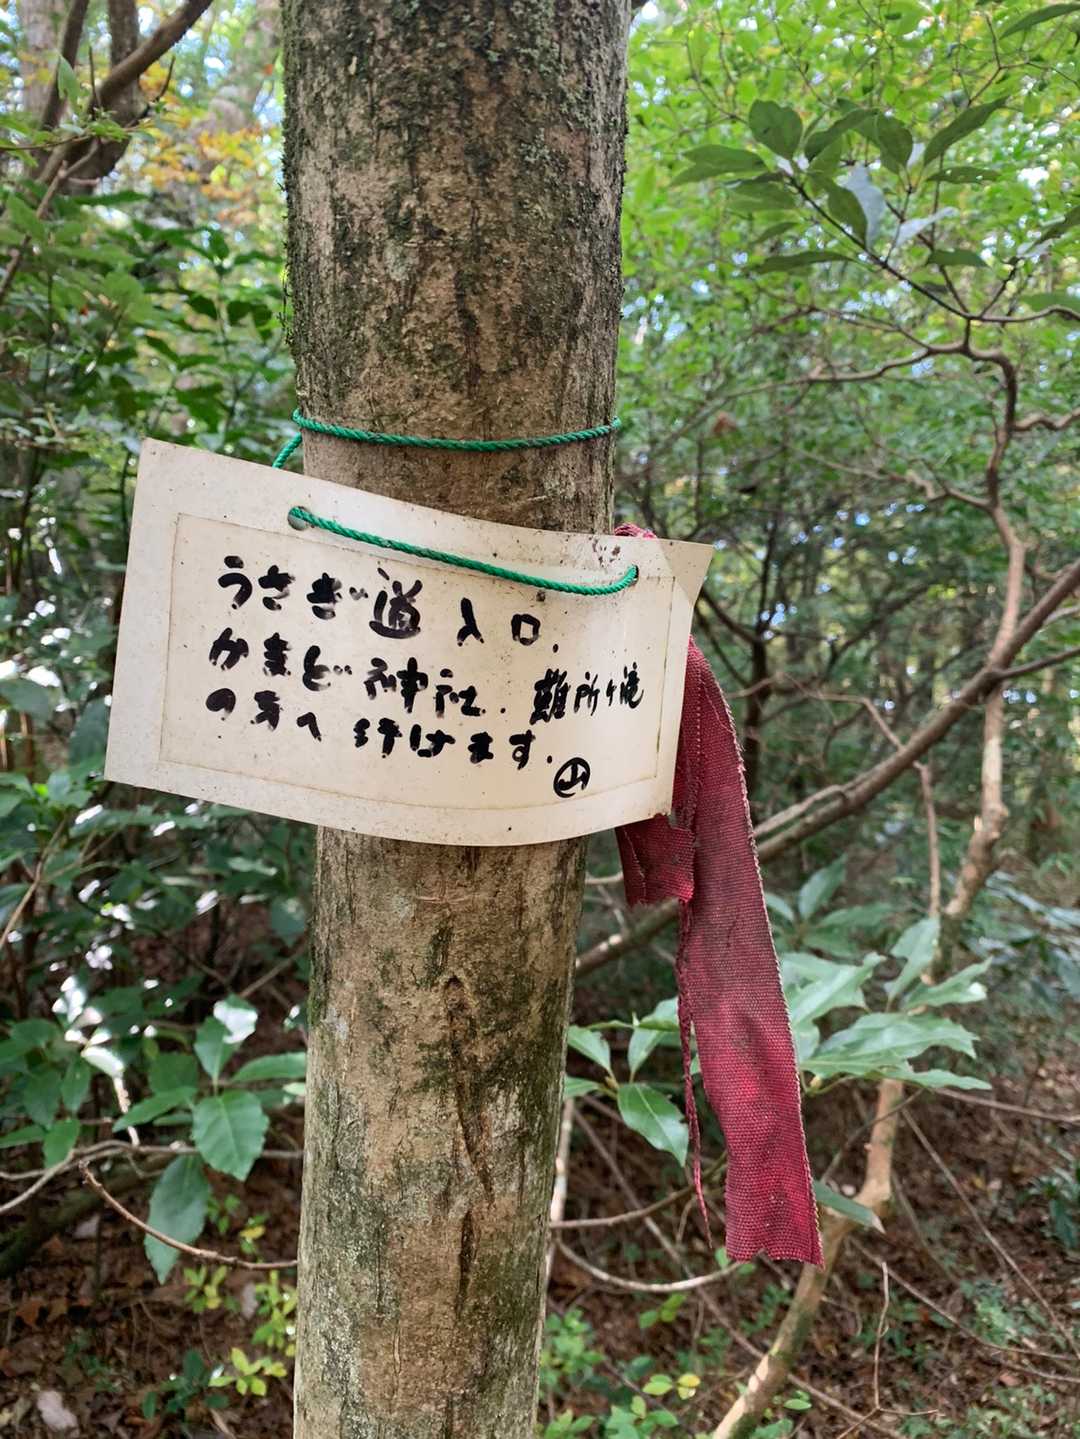 うさぎ道 入口.
かまど神社. 難所ヶ滝
の方へ 行けます.
山